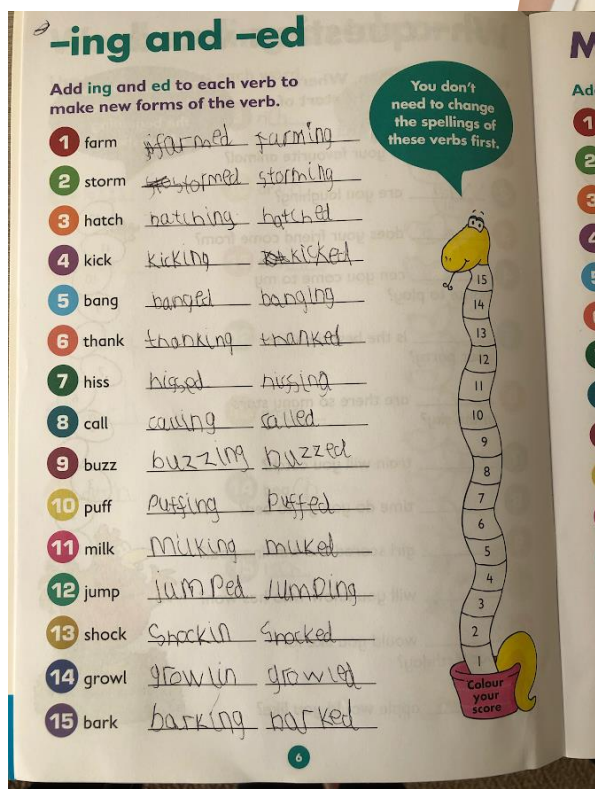 -ing and -ed
Add ing and ed to each verb to
make new forms of the verb.
You don't
need to change
the spellings of
these verbs first.
1 farm farmed farming
2 storm stormed storming
3 hatch hatching hatched
4 kick kicking kicked
5 bang banged banging
6 thank thanking thanked
7 hiss hissed hissing
8 call calling called
9 buzz buzzing buzzed
10 puff puffing puffed
11 milk milking milked
12 jump jumped jumping
13 shock shockin shocked
14 growl growlin growled
15 bark barking barked
15
14
13
12
11
10
9
8
7
6
5
4
3
2
1
Colour
your
score
6
M
Ad
1
2
3
4
5